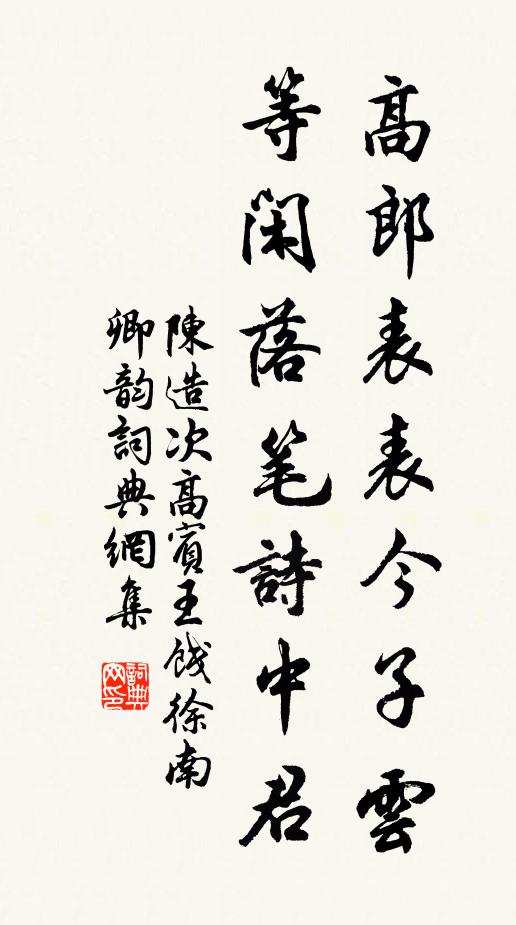 高郎表表今子雲
等閑落笔詩中君
陳造次高賓王餞徐南
卿韵詞典網集
詞典网印